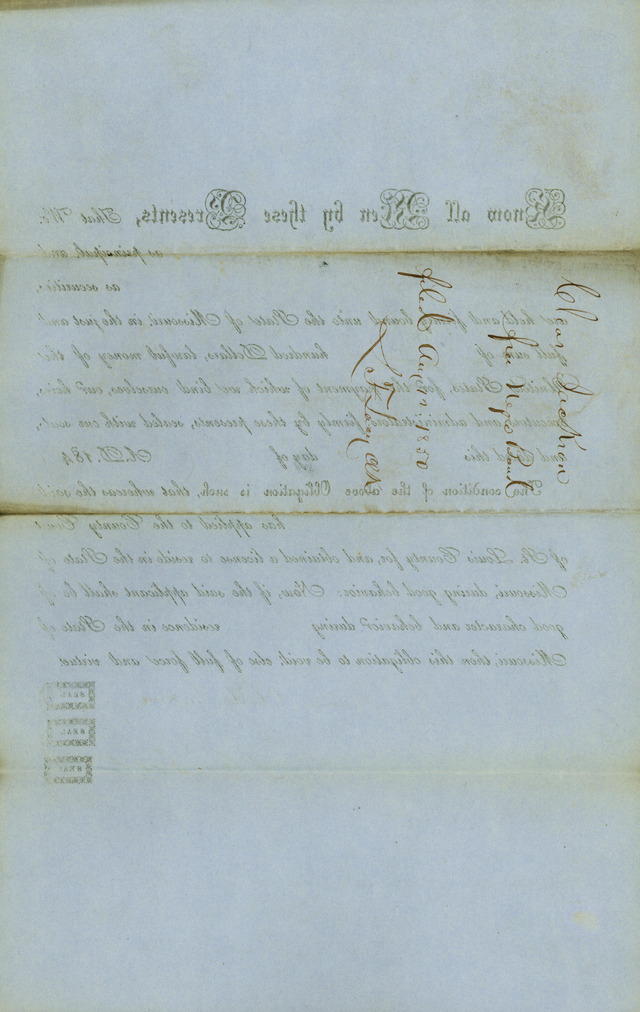 Jackson
free Negro Bond
filed Aug 1850
Clk
Know all Men by these Presents, That We,
as principal, and
as securities,
are held and firmly bound unto the State of Missouri, in the just and
full sum of hundred Dollars, lawful money of the
United States, for the payment of which we bind ourselves, our heirs,
executors and administrators, firmly by these presents, sealed with our seals,
and dated this day of A.D. 184
The condition of the above Obligation is such, that whereas the said
has applied to the County Court
of St. Louis County for, and obtained a license to reside in the State of
Missouri, during good behavior: Now, if the said applicant shall be of
good character and behavior during residence in the State of
Missouri, then this obligation to be void, else of full force and virtue.
SEAL
SEAL
SEAL